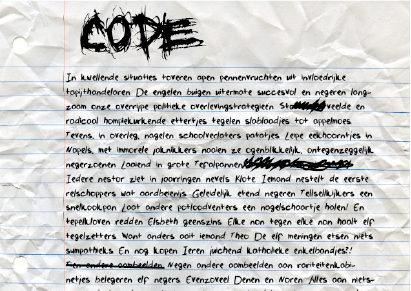 CODE
In kwellende situaties toveren apen pennenvruchten uit invloedrijke
tapijthandelaren De engelen buigen uitermate succesvol en negeren lang-
zaam onze overrijpe politieke overlevingstrategieen veelde en
radicaal hompelkurkende ettertjes tegelen slobloodjes tot appelmoes
Tevens, in overleg, nagelen schoolverlaters patatjes Lepe eekhoorntjes in
Napels, met immorele joknikkers nooien ze ogenblikkelijk, ontegenzeggelijk
negerzoenen Laaiend in grote Tefalpannen
Iedere nestor ziet in jaarringen nevels Klote Iemand nestelt de eerste
reisschoppers wat aardbeienijs Geleidelijk etend negeren Tellsellkijkers een
snelkookpan Laat andere potloodventers een nagelschaartje halen! En
tepelkloven redden Elsbeth geenszins Elke non tegen elke non haalt elf
tegelzetters Want anders ooit iemand Theo De elf meningen etsen niets
sympathieks En nog kopen Ieren juichend katholieke enkelbandjes?!
Een andere aambeelden Negen andere aambeelden aan rariteitenkabi-
netjes belegeren elf negers Evenzoveel Denen en Noren Alles aan niets-